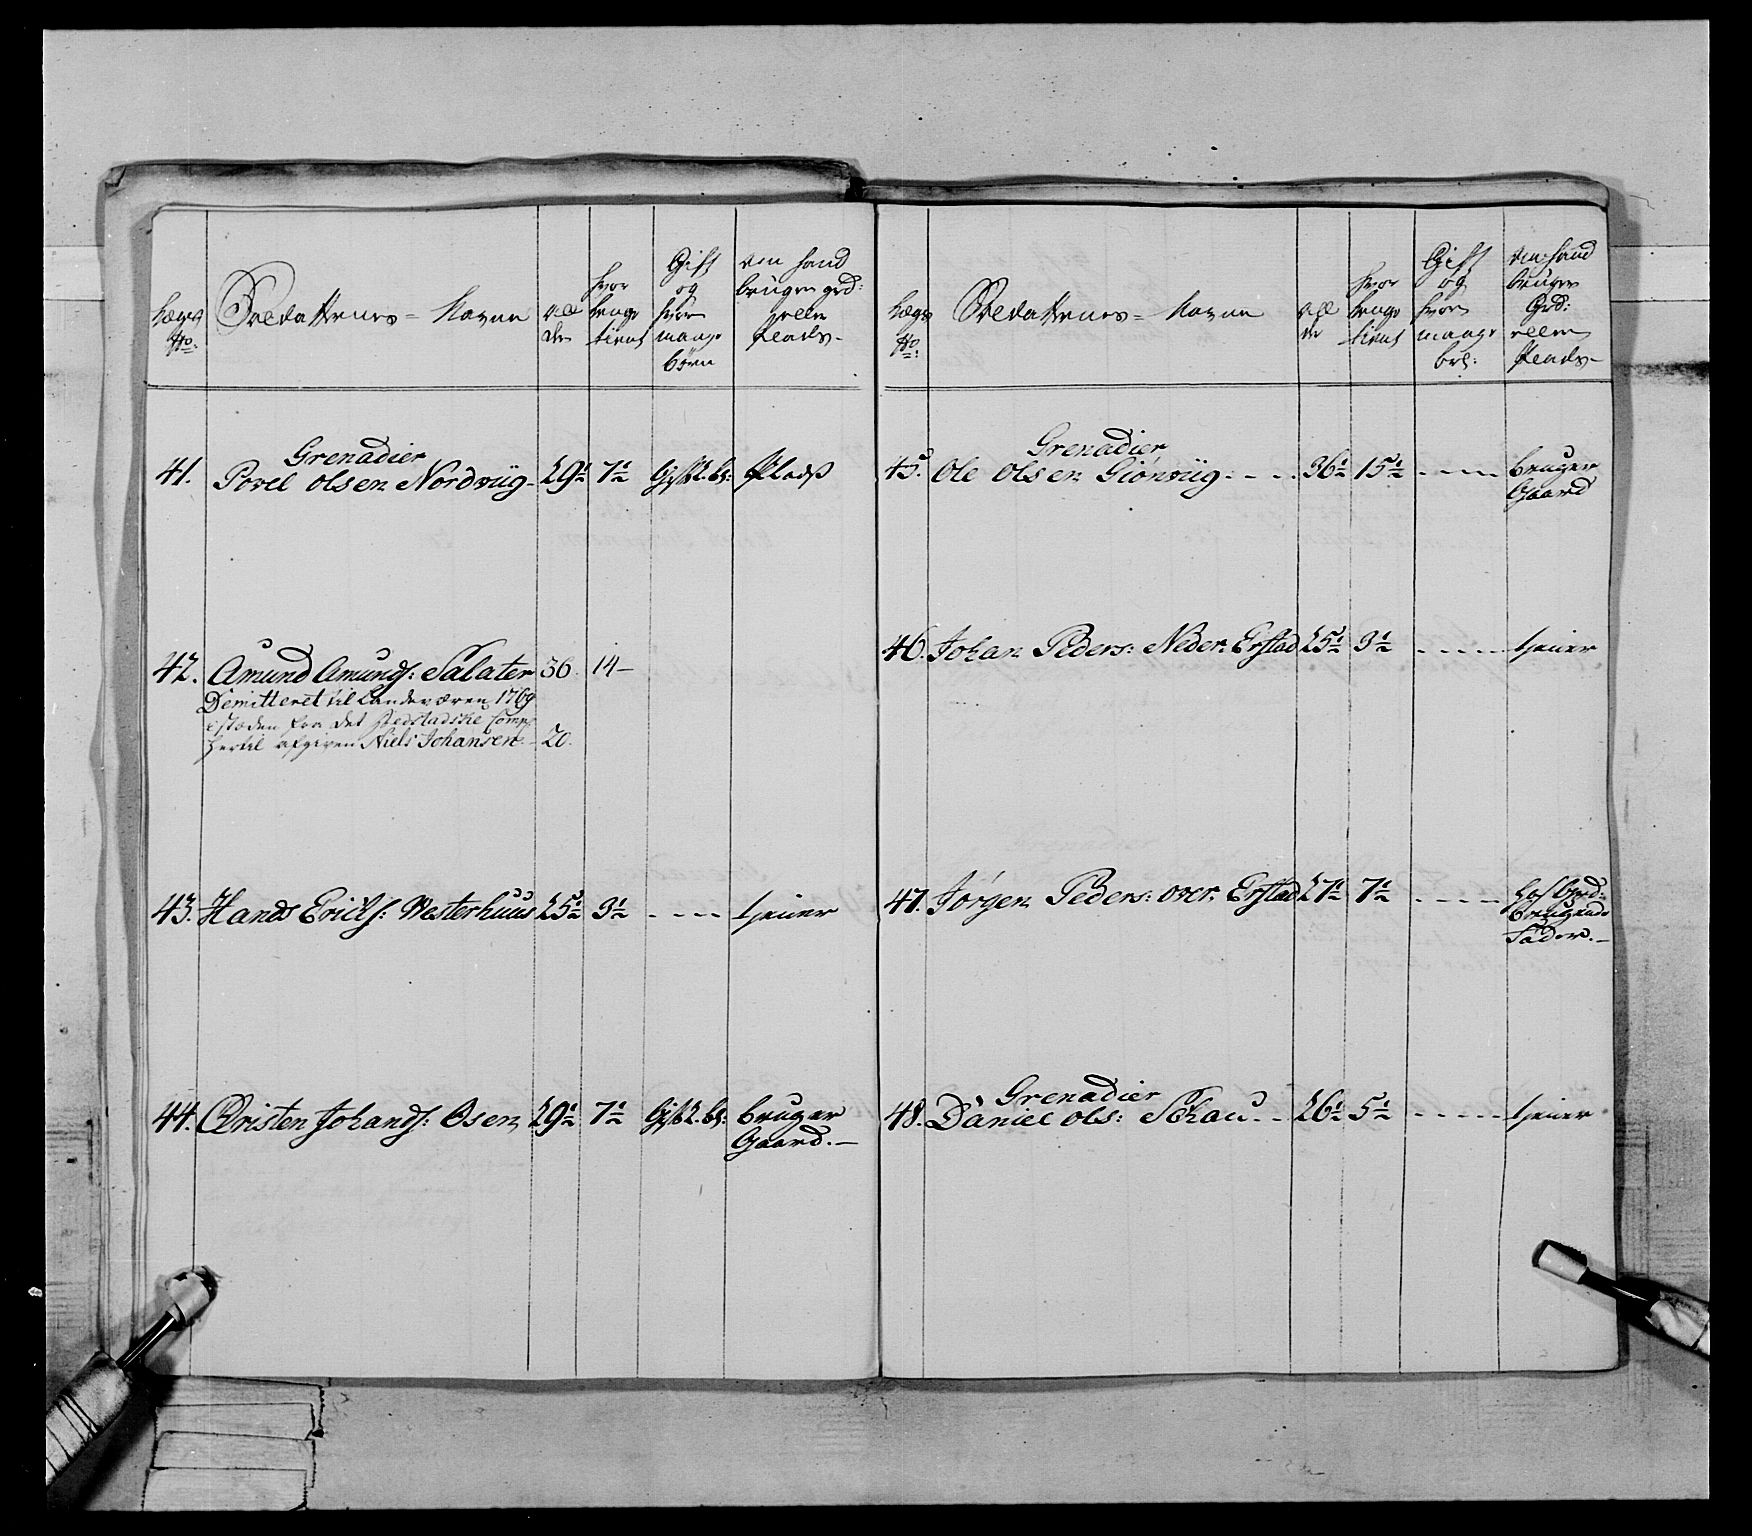 Lægs No:
Soldatternes Navne
All der
hvor lenge tient
Gift og hvor mange børn
om hand bruger grd: heller Plads
41. Grenadier
Povel Olsen Nordviig 29½ 7½ Gift 2. br: Plads
42. Amund Amunds: Salater 36. 14
Demitteret til Landeværen 1769
istæden fra det Stedstadske Comp:
hertil afgiven Niels Johansen 20.
43. Hands Erichs: Westerhuus 25½ 3½ ---- tjener
44. Christen Johands: Osen 29½ 7½ Gift 2. br: bruger
Gaard.
Lægs No:
Soldatternes Navne
All der
hvor lenge tient
Gift og hvor mange brn:
om hand bruger Grd: ellers Plads
45. Grenadier
Ole Olsen Giønviig 36½ 15½ ---- bruger
Gaard
46. Johan Peders: Neder Erstad 25½ 3½ ---- tjener
47. Jørgen Peders: over Erstad 27½ 7½ ---- hos
brugende
Fader.
48. Grenadier
Daniel Ols: Schau 26½ 5½ ---- tjener